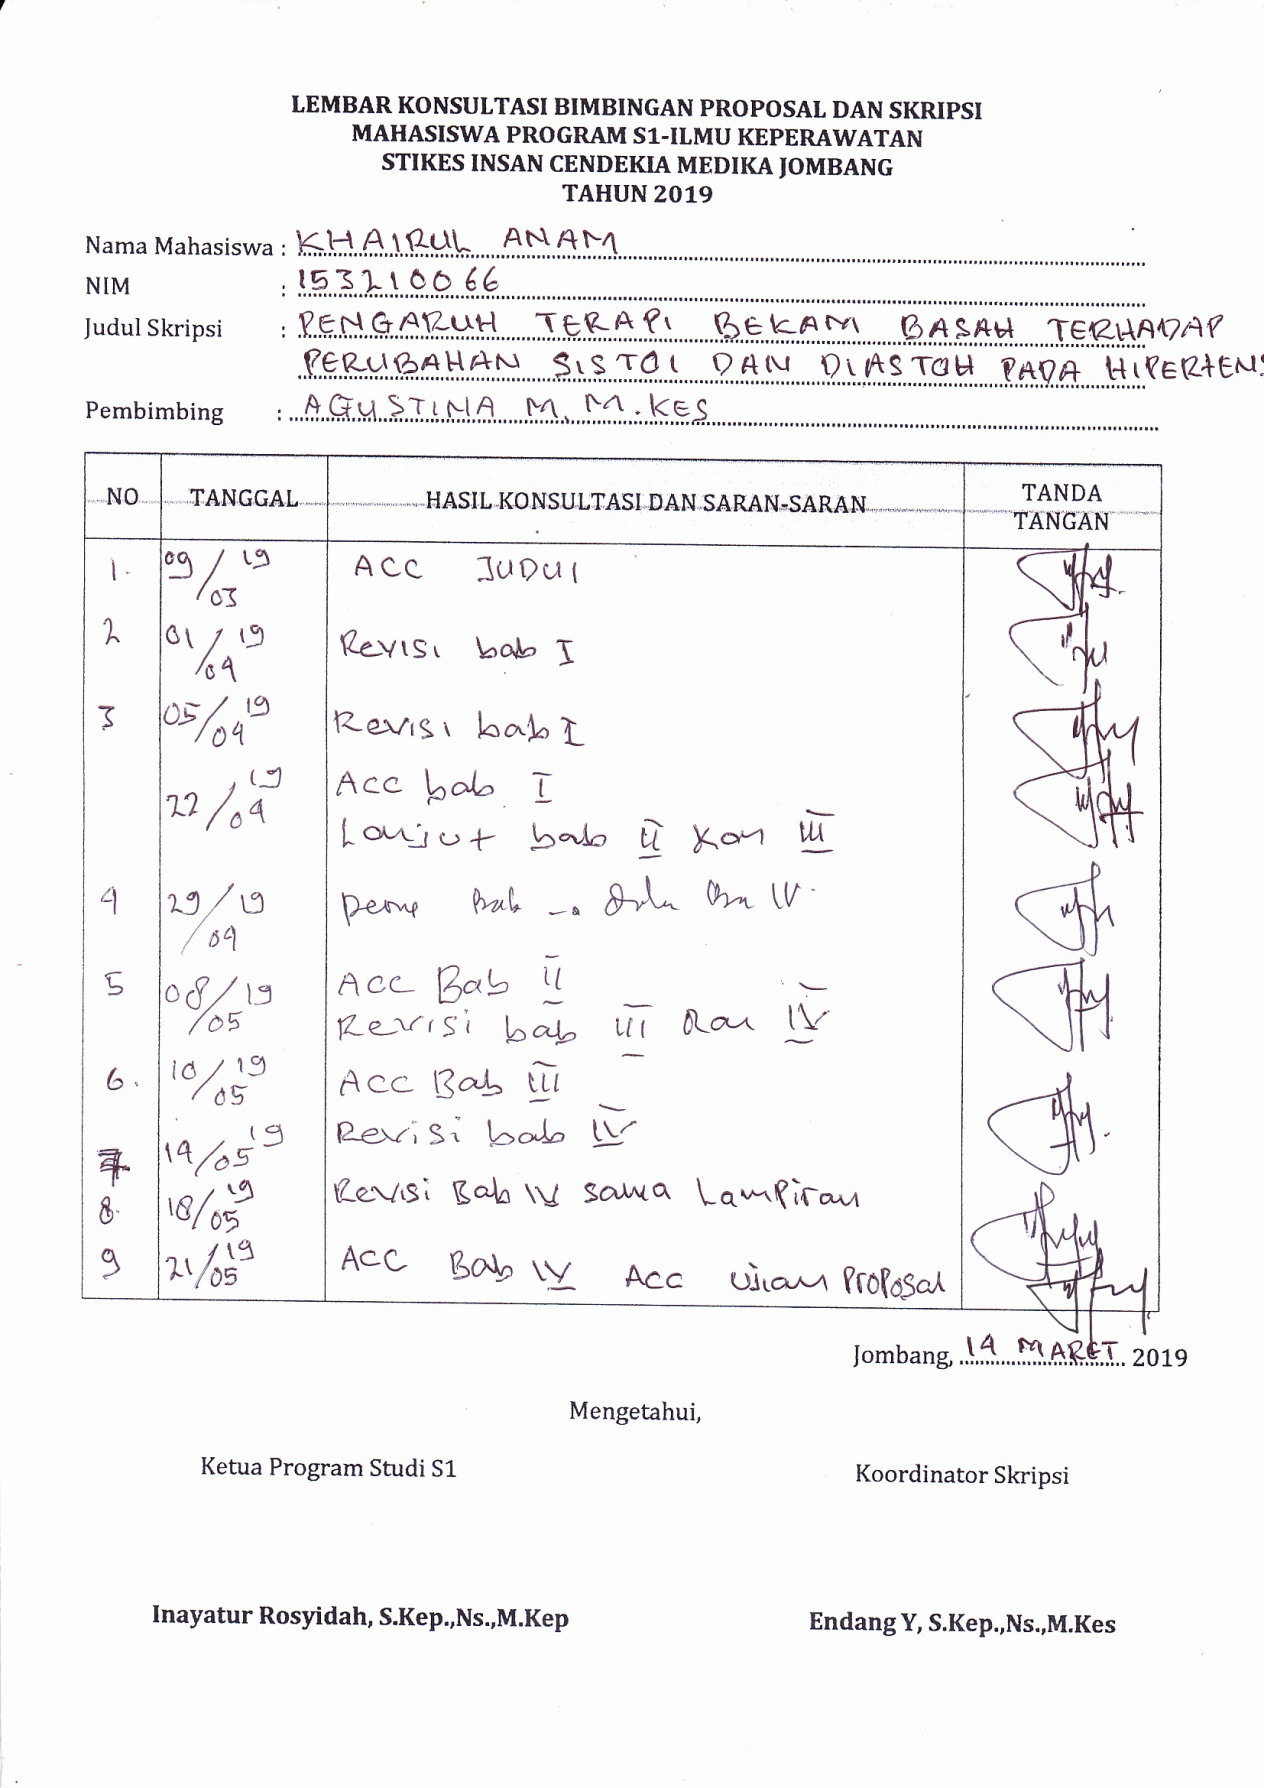 LEMBAR KONSULTASI BIMBINGAN PROPOSAL DAN SKRIPSI
MAHASISWA PROGRAM S1-ILMU KEPERAWATAN
STIKES INSAN CENDEKIA MEDIKA JOMBANG
TAHUN 2019
Nama Mahasiswa : KHAIRUL ANAM
NIM : 153210066
Judul Skripsi : PENGARUH TERAPI BEKAM BASAH TERHADAP
PERUBAHAN SISTOl DAN DIASTOH PADA HIPERTENS
Pembimbing : AGUSTINA M. M.KES
NO TANGGAL HASIL KONSULTASI DAN SARAN-SARAN TANDA TANGAN
1. 09/03 19 ACC JUDUl
2 01/04 19 Revisi bab I
3 05/04 19 Revisi bab I
22/04 19 Acc bab I
Lanjut bab II III
4 29/04 19 Bab IV
5 08/05 19 Acc Bab II
Revisi bab III Dan IV
6. 10/05 19 Acc Bab III
7 14/05 19 Revisi bab IV
8. 18/05 19 Revisi Bab IV sama Lampiran
9 21/05 19 Acc Bab IV Acc Ujian Proposal
Jombang, 14 MARET 2019
Mengetahui,
Ketua Program Studi S1 Koordinator Skripsi
Inayatur Rosyidah, S.Kep.,Ns.,M.Kep Endang Y, S.Kep.,Ns.,M.Kes